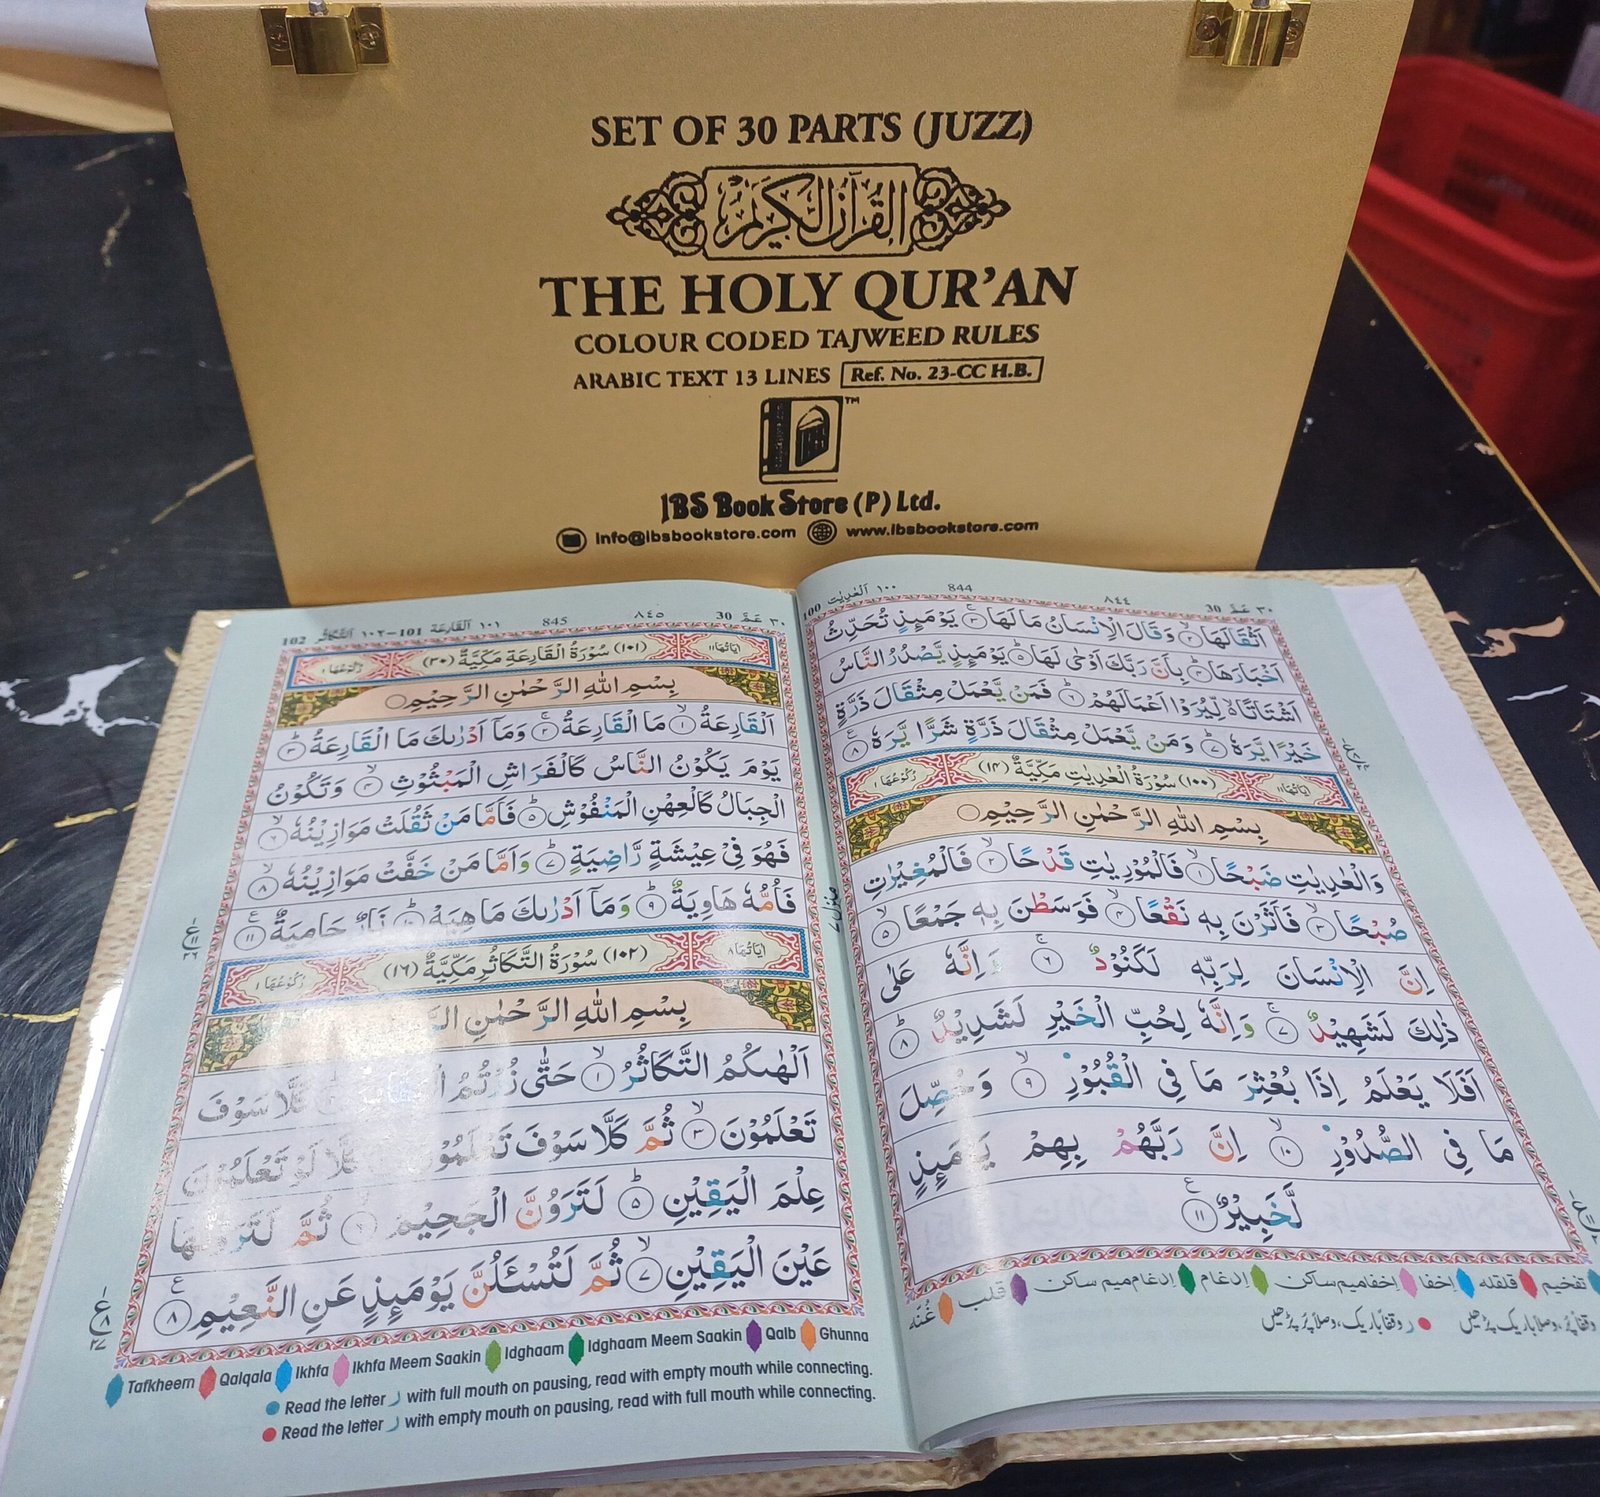 SET OF 30 PARTS (JUZZ)
القرآن الكريم
THE HOLY QUR'AN
COLOUR CODED TAJWEED RULES
ARABIC TEXT 13 LINES Ref. No. 23-CC H.B.
TM
IBS Book Store (P) Ltd.
info@ibsbookstore.com www.ibsbookstore.com
٣٠ عَمَّ 30 ٨٤٤ 844 ١٠٠ اَلْعٰدِيٰت 100
اَثْقَالَهَا ۙ﴿۲﴾ وَقَالَ الْاِنْسَانُ مَا لَهَا ۚ﴿۳﴾ يَوْمَئِذٍ تُحَدِّثُ
اَخْبَارَهَا ۙ﴿۴﴾ بِاَنَّ رَبَّكَ اَوْحٰى لَهَا ؕ﴿۵﴾ يَوْمَئِذٍ يَّصْدُرُ النَّاسُ
اَشْتَاتًا ۙ لِّيُرَوْا اَعْمَالَهُمْ ؕ﴿۶﴾ فَمَنْ يَّعْمَلْ مِثْقَالَ ذَرَّةٍ
خَيْرًا يَّرَهٗ ؕ﴿۷﴾ وَمَنْ يَّعْمَلْ مِثْقَالَ ذَرَّةٍ شَرًّا يَّرَهٗ ﴿۸﴾
اٰيَاتُهَا ١١ (١٠٠) سُوْرَةُ الْعٰدِيٰتِ مَكِّيَّةٌ (١٤) رُكُوْعُهَا ١
بِسْمِ اللهِ الرَّحْمٰنِ الرَّحِيْمِ
وَالْعٰدِيٰتِ ضَبْحًا ۙ﴿۱﴾ فَالْمُوْرِيٰتِ قَدْحًا ۙ﴿۲﴾ فَالْمُغِيْرٰتِ
صُبْحًا ۙ﴿۳﴾ فَاَثَرْنَ بِهٖ نَقْعًا ۙ﴿۴﴾ فَوَسَطْنَ بِهٖ جَمْعًا ۙ﴿۵﴾
اِنَّ الْاِنْسَانَ لِرَبِّهٖ لَكَنُوْدٌ ۚ﴿۶﴾ وَاِنَّهٗ عَلٰى
ذٰلِكَ لَشَهِيْدٌ ۚ﴿۷﴾ وَاِنَّهٗ لِحُبِّ الْخَيْرِ لَشَدِيْدٌ ؕ﴿۸﴾
اَفَلَا يَعْلَمُ اِذَا بُعْثِرَ مَا فِى الْقُبُوْرِ ۙ﴿۹﴾ وَحُصِّلَ
مَا فِى الصُّدُوْرِ ۙ﴿۱۰﴾ اِنَّ رَبَّهُمْ بِهِمْ يَوْمَئِذٍ
لَّخَبِيْرٌ ﴿۱۱﴾
تفخیم قلقله اِخفا اِخفامیم ساکن اِدغام اِدغام میم ساکن قلب غُنّه
٣٠ عَمَّ 30 ٨٤٥ 845 ١٠١ اَلْقَارِعَة 101-١٠٢ اَلتَّكَاثُر 102
اٰيَاتُهَا ١١ (١٠١) سُوْرَةُ الْقَارِعَةِ مَكِّيَّةٌ (٣٠) رُكُوْعُهَا ١
بِسْمِ اللهِ الرَّحْمٰنِ الرَّحِيْمِ
اَلْقَارِعَةُ ۙ﴿۱﴾ مَا الْقَارِعَةُ ۚ﴿۲﴾ وَمَاۤ اَدْرٰىكَ مَا الْقَارِعَةُ ؕ﴿۳﴾
يَوْمَ يَكُوْنُ النَّاسُ كَالْفَرَاشِ الْمَبْثُوْثِ ۙ﴿۴﴾ وَتَكُوْنُ
الْجِبَالُ كَالْعِهْنِ الْمَنْفُوْشِ ؕ﴿۵﴾ فَاَمَّا مَنْ ثَقُلَتْ مَوَازِيْنُهٗ ۙ﴿۶﴾
فَهُوَ فِىْ عِيْشَةٍ رَّاضِيَةٍ ؕ﴿۷﴾ وَاَمَّا مَنْ خَفَّتْ مَوَازِيْنُهٗ ۙ﴿۸﴾
فَاُمُّهٗ هَاوِيَةٌ ؕ﴿۹﴾ وَمَاۤ اَدْرٰىكَ مَا هِيَهْ ؕ﴿۱۰﴾ نَارٌ حَامِيَةٌ ﴿۱۱﴾
اٰيَاتُهَا ٨ (١٠٢) سُوْرَةُ التَّكَاثُرِ مَكِّيَّةٌ (١٦) رُكُوْعُهَا ١
بِسْمِ اللهِ الرَّحْمٰنِ
اَلْهٰىكُمُ التَّكَاثُرُ ۙ﴿۱﴾ حَتّٰى زُرْتُمُ كَلَّا سَوْفَ
تَعْلَمُوْنَ ۙ﴿۳﴾ ثُمَّ كَلَّا سَوْفَ تَعْلَمُوْنَ كَلَّا لَوْ تَعْلَمُوْنَ
عِلْمَ الْيَقِيْنِ ؕ﴿۵﴾ لَتَرَوُنَّ الْجَحِيْمَ ۙ﴿۶﴾ ثُمَّ لَتَرَوُنَّهَا
عَيْنَ الْيَقِيْنِ ۙ﴿۷﴾ ثُمَّ لَتُسْـَٔلُنَّ يَوْمَئِذٍ عَنِ النَّعِيْمِ ﴿۸﴾
Tafkheem Qalqala Ikhfa Ikhfa Meem Saakin Idghaam Idghaam Meem Saakin Qalb Ghunna
Read the letter ر with full mouth on pausing, read with empty mouth while connecting.
Read the letter ر with empty mouth on pausing, read with full mouth while connecting.